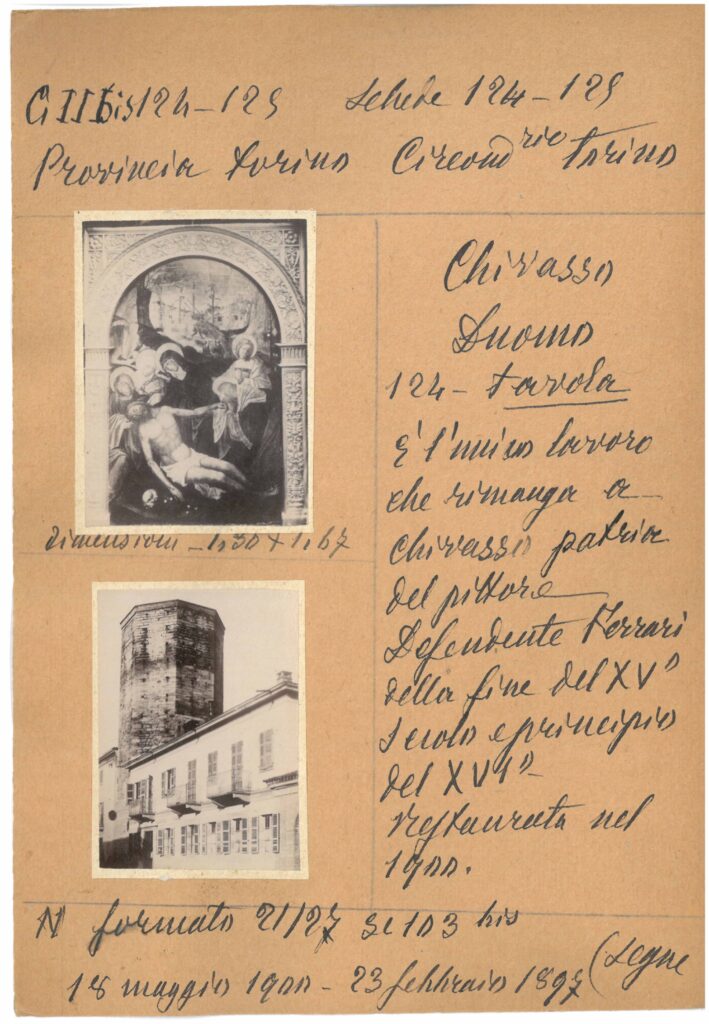 C III bis 124-125 Schede 124-125
Provincia Torino Circondrio Torino
dimensioni - 1,30 x 1,67
Chivasso
Duomo
124- tavola
È l'unico lavoro
che rimanga a
Chivasso patria
del pittore
Defendente Ferrari
della fine del XVº
secolo e principio
del XVIº
restaurata nel
1900.
N formato 21/27 103 bis
18 maggio 1900 - 23 febbraio 1897 (segue